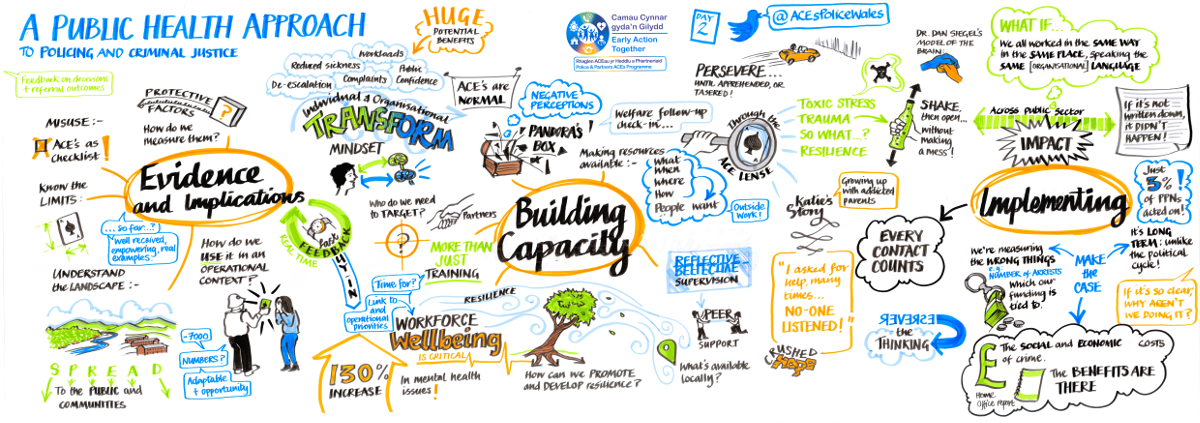 A PUBLIC HEALTH APPROACH
TO POLICING AND CRIMINAL JUSTICE
Feedback on decisions
+ referral outcomes
MISUSE:-
ACE's as
checklist!
PROTECTIVE
FACTORS
?
How do we
measure them?
Evidence
and Implications
KNOW the
LIMITS:-
A
...so far..?
Well received,
empowering, real
examples~
UNDERSTAND
the LANDSCAPE:-
SPREAD
To the PUBLIC and
COMMUNITIES
HOW do we
USE it in an
OPERATIONAL
CONTEXT?
~7000
NUMBERS?
Adaptable
+ opportunity
HUGE
POTENTIAL
BENEFITS
Workloads
Reduced sickness
Public
Confidence
Complaints
De-escalation
Individual & Organisational
TRANSFORM
MINDSET
ACE's are
NORMAL
REAL TIME
Fast
FEEDBACK
BUY IN
Who do we need
to TARGET?
Partners
?
MORE THAN
JUST
TRAINING
Time for?
Link to
and
operational
priorities
WORKFORCE
Wellbeing
IS CRITICAL
RESILIENCE
130%
INCREASE
In mental health
issues!
How can we PROMOTE
and DEVELOP resilience?
Camau Cynnar
gyda'n Gilydd
Early Action
Together
Rhaglen ACEau yr Heddlu a Phartneriaid
Police & Partners ACEs Programme
NEGATIVE
PERCEPTIONS
PANDORA'S
BOX!
Building
Capacity
Welfare follow-up
check-in...
Making resources
available:-
What
When
Where
How
People want
Outside
Work!
REFLECTIVE
SUPERVISION
PEER
SUPPORT
What's available
locally?
DAY
2
@ACEsPoliceWales
PERSEVERE...
UNTIL APPREHENDED, OR
TASERED!
Through the
ACE LENSE
TOXIC STRESS
TRAUMA
SO WHAT..?
RESILIENCE
DR. DAN SIEGEL'S
MODEL OF THE
BRAIN:-
SHAKE,
then open...
without
making
a mess!
Katie's
Story
Growing up
with addicted
parents
"I asked for
help, many
times...
NO-ONE
LISTENED!"
Hope
EVERY
CONTACT
COUNTS
REVERSE
the
THINKING
WHAT IF...
We all worked in the SAME WAY
in the SAME PLACE, speaking the
SAME [ORGANISATIONAL] LANGUAGE
Across public sector
IMPACT
If it's not
written down,
it DIDN'T
HAPPEN!
Implementing
Just
3%
of PPNs
acted on!
It's LONG
TERM: unlike
the political
cycle!
We're measuring
the WRONG THINGS
e.g.
NUMBER OF ARRESTS
Which our
funding is
tied to.
MAKE
the
CASE
If it's so clear,
WHY AREN'T
WE DOING IT?
£
The SOCIAL and ECONOMIC COSTS
of crime.
HOME
Office report
The BENEFITS ARE
THERE